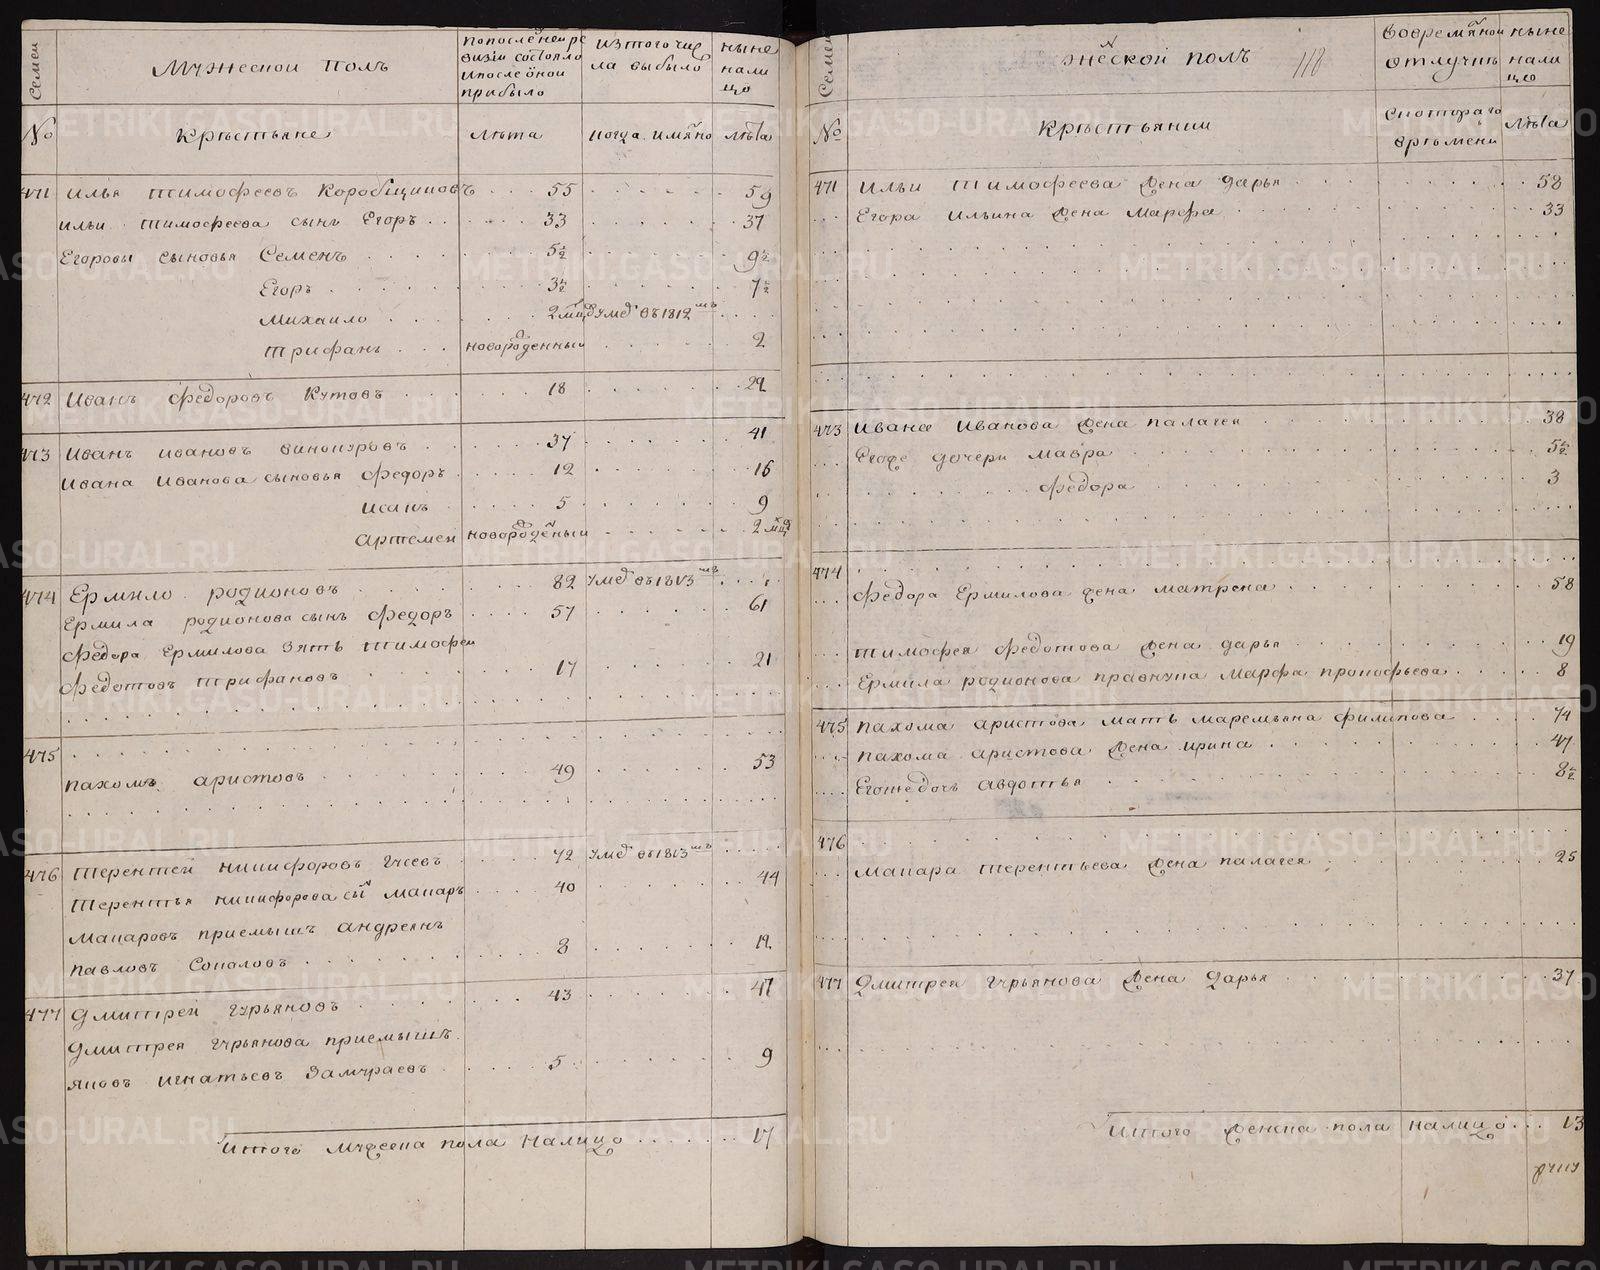 Семеи
Мужеской полъ
по последней ре
визіи состояло
и после оной
прибыло
изтого чис
ла выбыло
ныне
нали
цо
№
Крестьяне
лѣта
когда имянно
лѣта
471 Илья Тимофеевъ Коробициновъ 55 59
Ильи Тимофеева сынъ Егоръ 33 37
Егоровы сыновья Семенъ 5½ 9½
Егоръ 3½ 7½
Михайло 2 мцд умед въ 1812мъ
Трифанъ новорожденный 2
472 Иванъ Федоровъ Кутовъ 18 22
473 Иванъ Ивановъ Винокуровъ 37 41
Ивана Иванова сыновья Федоръ 12 16
Иванъ 5 9
Артемей новорожденный 2 мцд
474 Ермило Родионовъ 82 умед въ 1813мъ
Ермила Родионова сынъ Федоръ 57 61
Федора Ермилова зять Тимофей
Федотовъ Трифановъ 17 21
475
Пахомъ Аристовъ 49 53
476 Терентей Никифоровъ Гусевъ 72 умед въ 1813мъ
Терентья Никифорова сынъ Макаръ 40 44
Макаровъ приемышъ Андреянъ
Павловъ Соколовъ 8 12
477 Дмитрей Гурьяновъ 43 47
Дмитрея Гурьянова приемышъ
Яковъ Игнатьевъ Замураевъ 5 9
Итого мужеска пола налицо 17
Семеи
женской полъ
118
во времянной
отлучке
ныне
нали
цо
№
Крестьянки
с котораго
времени
лѣта
471 Ильи Тимофеева жена Дарья 58
Егора Ильина жена Марфа 33
473 Ивана Иванова жена Палагея 38
Егоже дочери Мавра 5½
Федора 3
474
Федора Ермилова жена Матрена 58
Тимофея Федотова жена Дарья 19
Ермила Родионова правнука Марфа Прокофьева 8
475 Пахома Аристова мать Маремьяна Филипова 74
Пахома Аристова жена Ирина 47
Егожедочь Авдотья 8½
476
Макара Терентьева жена Палагея 25
477 Дмитрея Гурьянова жена Дарья 37
Итого женска пола налицо 13
METRIKI.GASO-URAL.RU